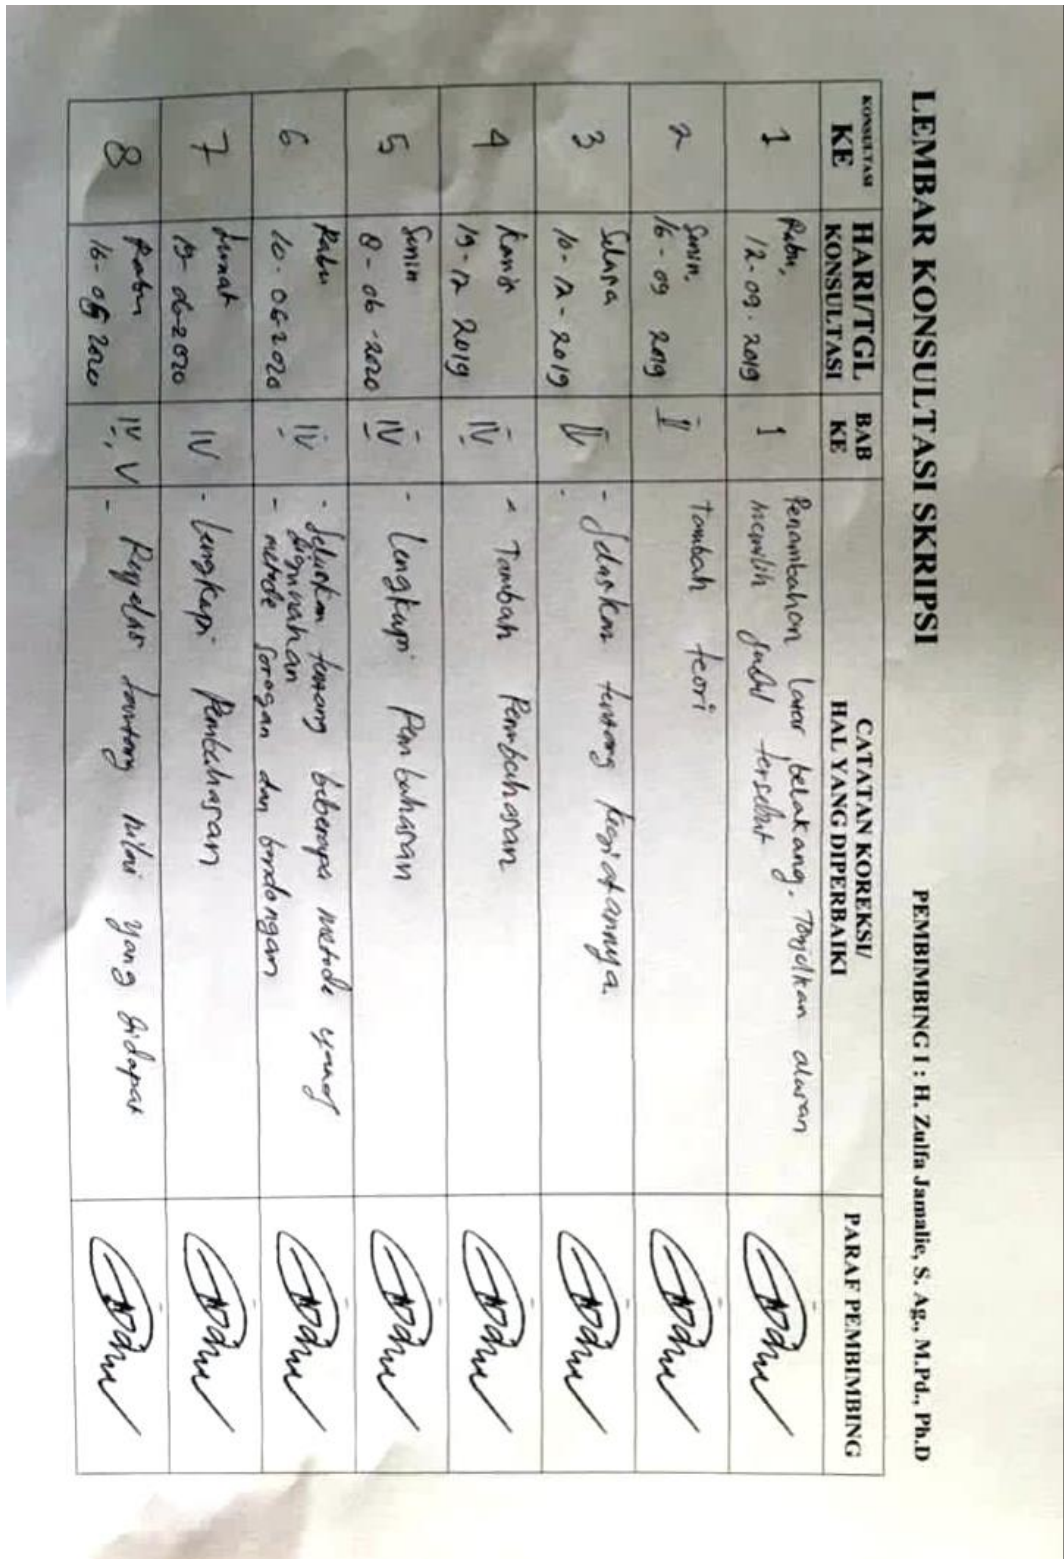 LEMBAR KONSULTASI SKRIPSI
PEMBIMBING I : H. Zulfa Jamalie, S. Ag., M.Pd., Ph.D
KONSULTASI KE
HARI/TGL KONSULTASI
BAB KE
CATATAN KOREKSI/
HAL YANG DIPERBAIKI
PARAF PEMBIMBING
1
Rabu,
12-09-2019
1
Penambahan latar belakang.
memilih judul tersebut
2
Senin,
16-09 2019
II
Tambah teori
3
Selasa
10-12-2019
II
- Jelaskan tentang
4
Kamis
19-12 2019
IV
- Tambah Pembahasan
5
Senin
8-06-2020
IV
- Lengkapi Pembahasan
6
Rabu
10-06-2020
IV
- Jelaskan tentang beberapa metode yang
digunakan
- metode sorogan dan bandongan
7
Jumat
19-06-2020
IV
- Lengkapi Pembahasan
8
Rabu
16- 2020
IV, V
- tentang nilai yang didapat